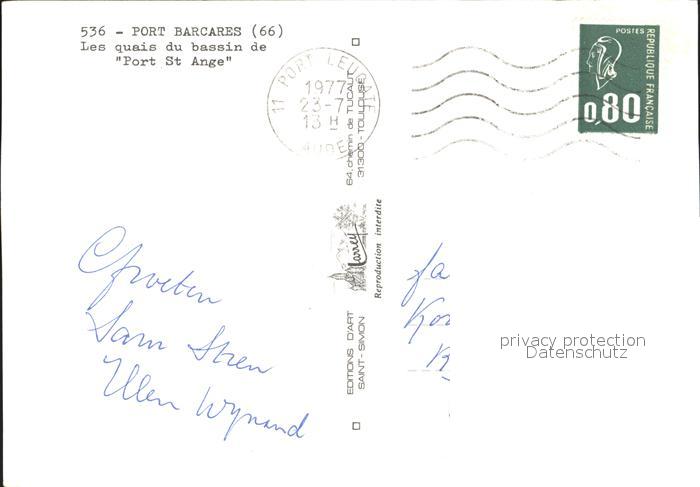 536 - PORT BARCARES (66)
Les quais du bassin de
"Port St Ange"
11 PORT LEUCATE
1977
23-7
13 H
AUDE
POSTES
RÉPUBLIQUE FRANÇAISE
0,80
64, chemin de TUCAUT
31300 - TOULOUSE
Larrey
Reproduction interdite
EDITIONS D'ART
SAINT-SIMON
Groeten
Ellen Wynand
privacy protection
Datenschutz